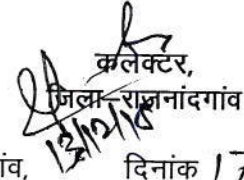 कलेक्टर,
जिला–राजनांदगांव
13/12/18
गांव, दिनांक 1